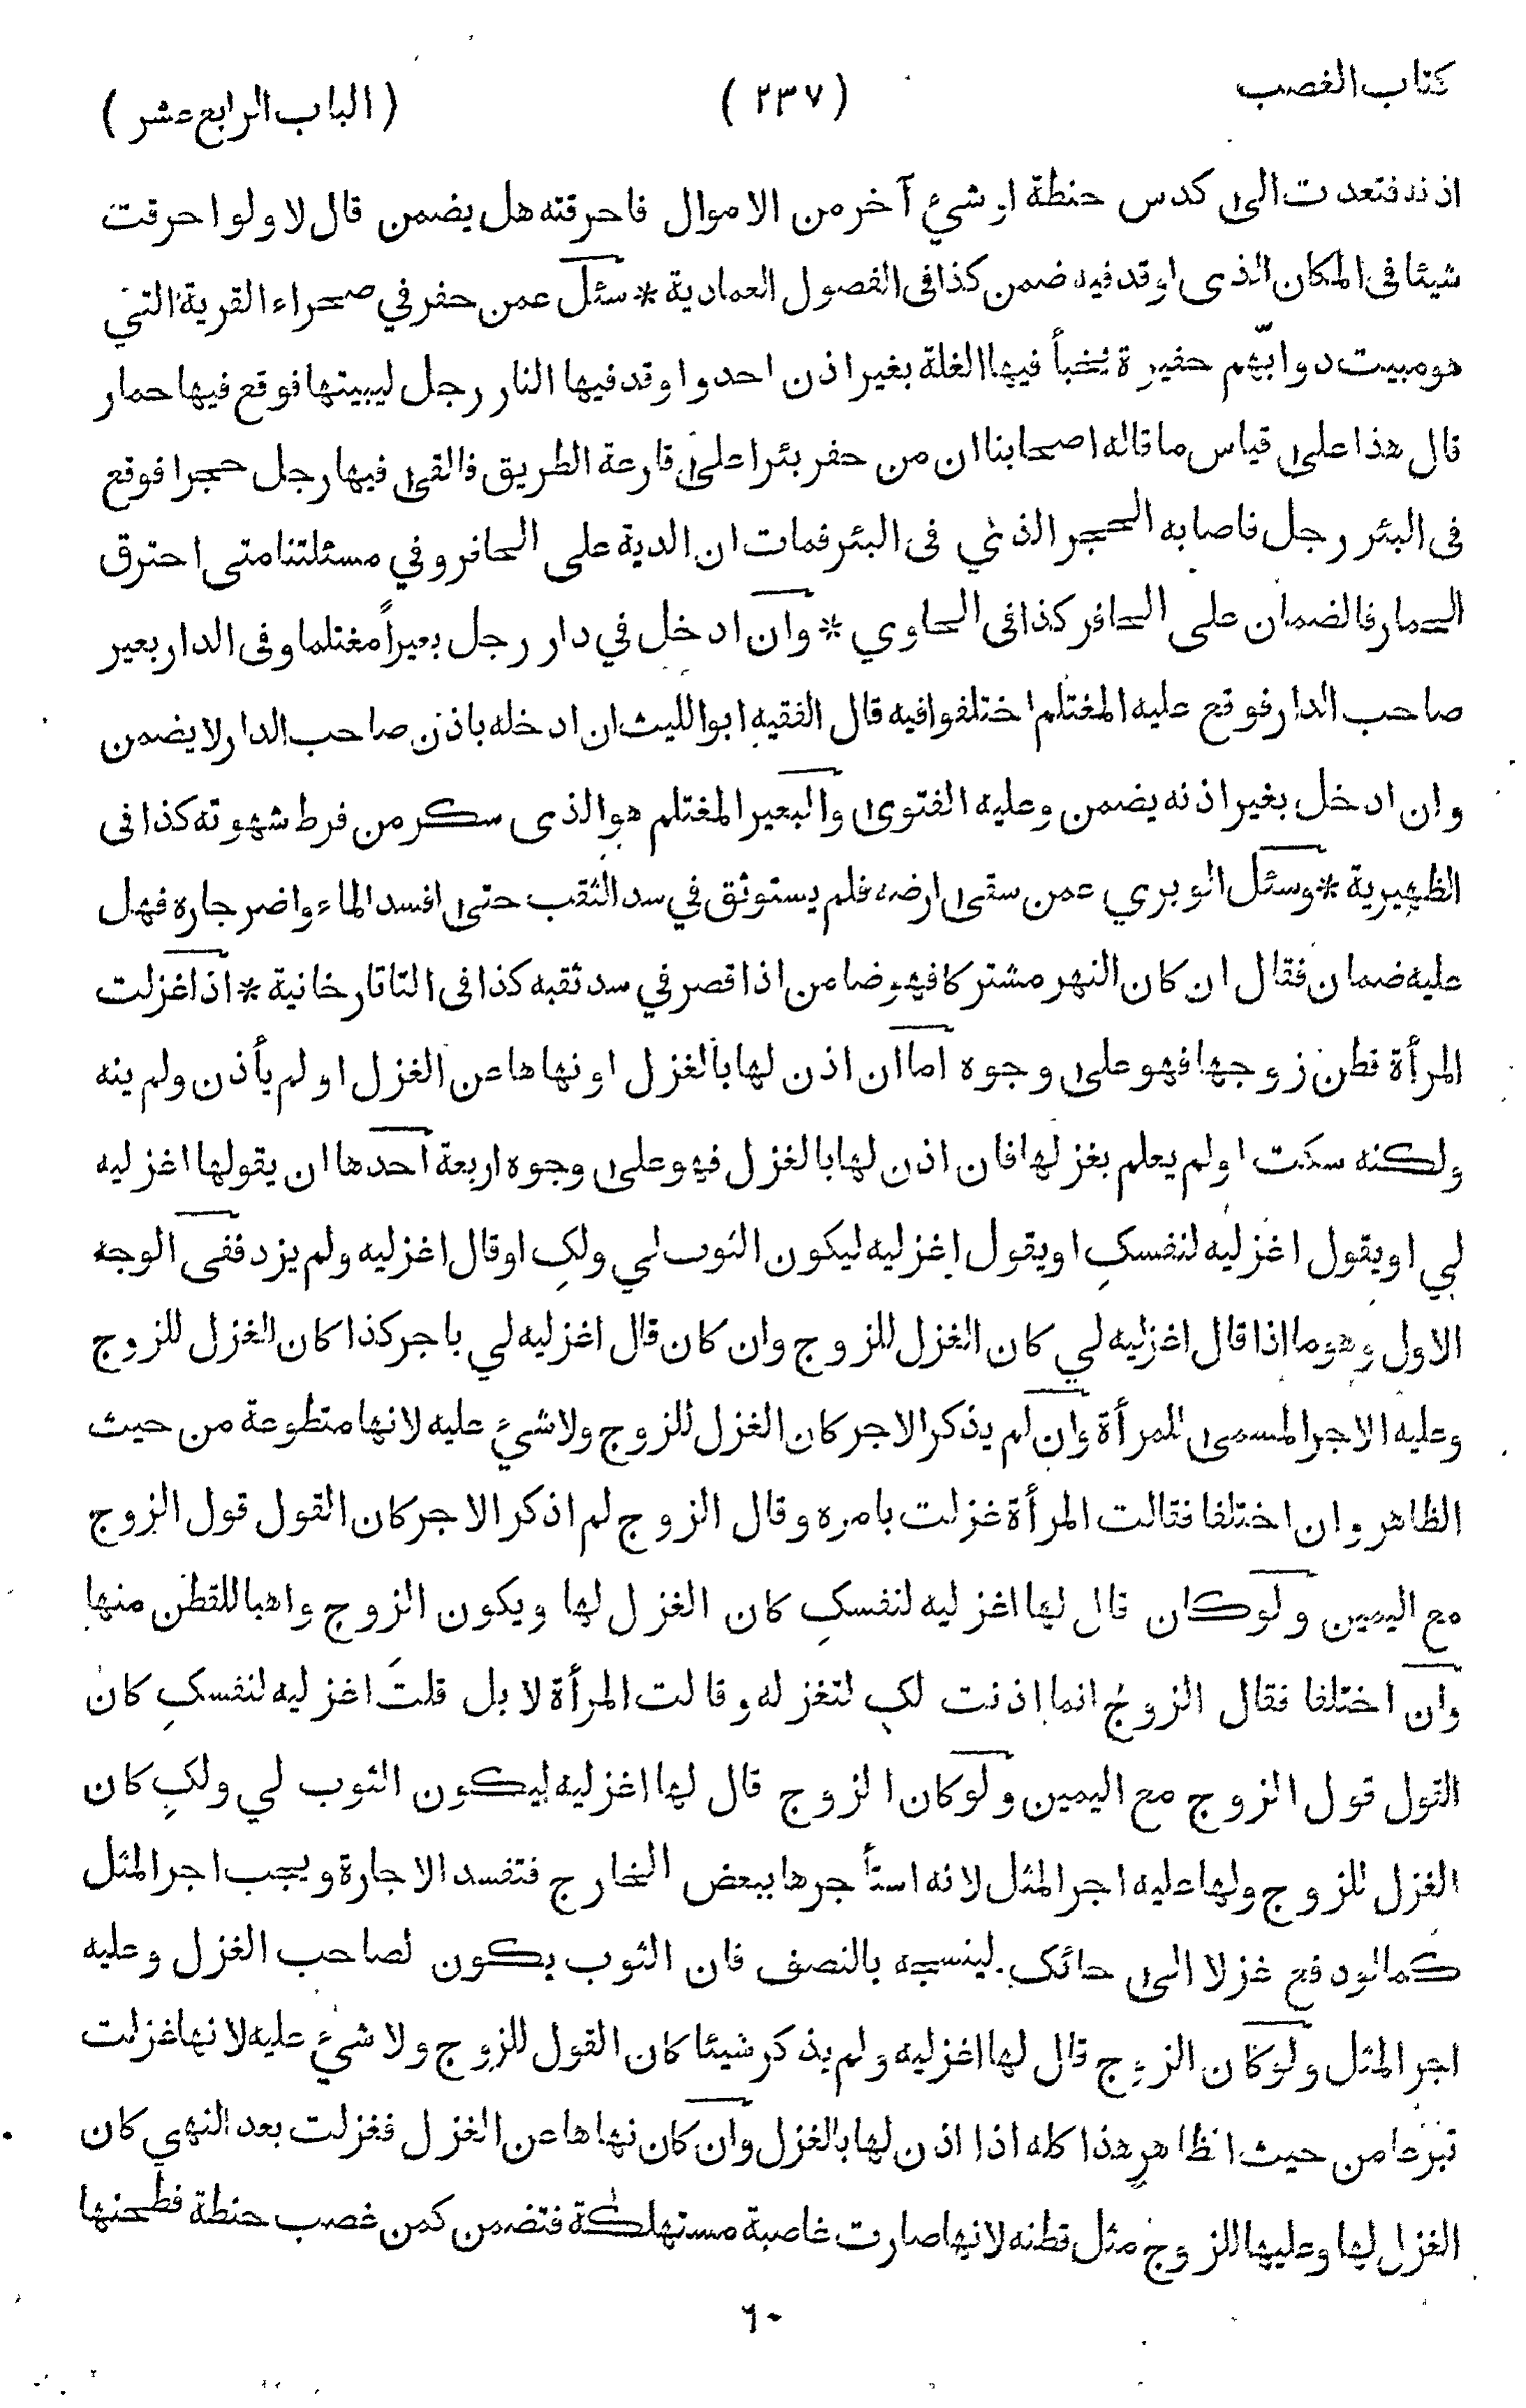 كتاب الغصب (٢٣٧) (الباب الرابع عشر)
اذنه فتعدت الى كدس حنطة او شئ آخر من الاموال فاحرقته هل يضمن قال لا ولو احرقت
شيئا فى المكان الذى اوقد فيه ضمن كذا فى الفصول العمادية * سئل عمن حفر في صحراء القرية التي
هو مبيت دوابّهم حفيرة يخبأ فيها الغلة بغير اذن احد واوقد فيها النار رجل ليبيتها فوقع فيها حمار
قال هذا على قياس ما قاله اصحابنا ان من حفر بئرا على قارعة الطريق فالقى فيها رجل حجرا فوقع
فى البئر رجل فاصابه الحجر الذي فى البئر فمات ان الدية على الحافر وفي مسئلتنا متى احترق
الحمار فالضمان على الحافر كذا فى الحاوي * وان ادخل في دار رجل بعيراً مغتلما وفى الدار بعير
صاحب الدار فوقع عليه المغتلم اختلفوا فيه قال الفقيه ابو الليث ان ادخله باذن صاحب الدار لا يضمن
وان ادخل بغير اذنه يضمن وعليه الفتوى والبعير المغتلم هو الذى سكر من فرط شهوته كذا فى
الظهيرية * وسئل الوبري عمن سقى ارضه فلم يستوثق في سد الثقب حتى افسد الماء واضر جاره فهل
عليه ضمان فقال ان كان النهر مشتركا فهو ضامن اذا قصر في سد ثقبه كذا فى التاتارخانية * اذا غزلت
المرأة قطن زوجها فهو على وجوه اما ان اذن لها بالغزل او نهاها عن الغزل او لم يأذن ولم ينه
ولكنه سكت او لم يعلم بغزلها فان اذن لها بالغزل فهو على وجوه اربعة احدها ان يقول لها اغزليه
لي او يقول اغزليه لنفسكِ او يقول اغزليه ليكون الثوب لي ولكِ او قال اغزليه ولم يزد ففى الوجه
الاول وهو ما اذا قال اغزليه لي كان الغزل للزوج وان كان قال اغزليه لي باجر كذا كان الغزل للزوج
وعليه الاجر المسمى للمرأة وان لم يذكر الاجر كان الغزل للزوج ولا شئ عليه لانها متطوعة من حيث
الظاهر وان اختلفا فقالت المرأة غزلت بامره وقال الزوج لم اذكر الاجر كان القول قول الزوج
مع اليمين ولو كان قال لها اغزليه لنفسكِ كان الغزل لها ويكون الزوج واهبا للقطن منها
وان اختلفا فقال الزوج انما اذنت لكِ لتغزله وقالت المرأة لا بل قلتَ اغزليه لنفسكِ كان
القول قول الزوج مع اليمين ولو كان الزوج قال لها اغزليه ليكون الثوب لي ولكِ كان
الغزل للزوج ولها عليه اجر المثل لانه استأجرها ببعض الخارج فتفسد الاجارة ويجب اجر المثل
كما لو دفع غزلا الى حائك لينسجه بالنصف فان الثوب يكون لصاحب الغزل وعليه
اجر المثل ولو كان الزوج قال لها اغزليه ولم يذكر شيئا كان القول للزوج ولا شئ عليه لانها غزلت
تبرعا من حيث الظاهر هذا كله اذا اذن لها بالغزل وان كان نهاها عن الغزل فغزلت بعد النهي كان
الغزل لها وعليها للزوج مثل قطنه لانها صارت غاصبة مستهلكة فتضمن كمن غصب حنطة فطحنها
٦٠